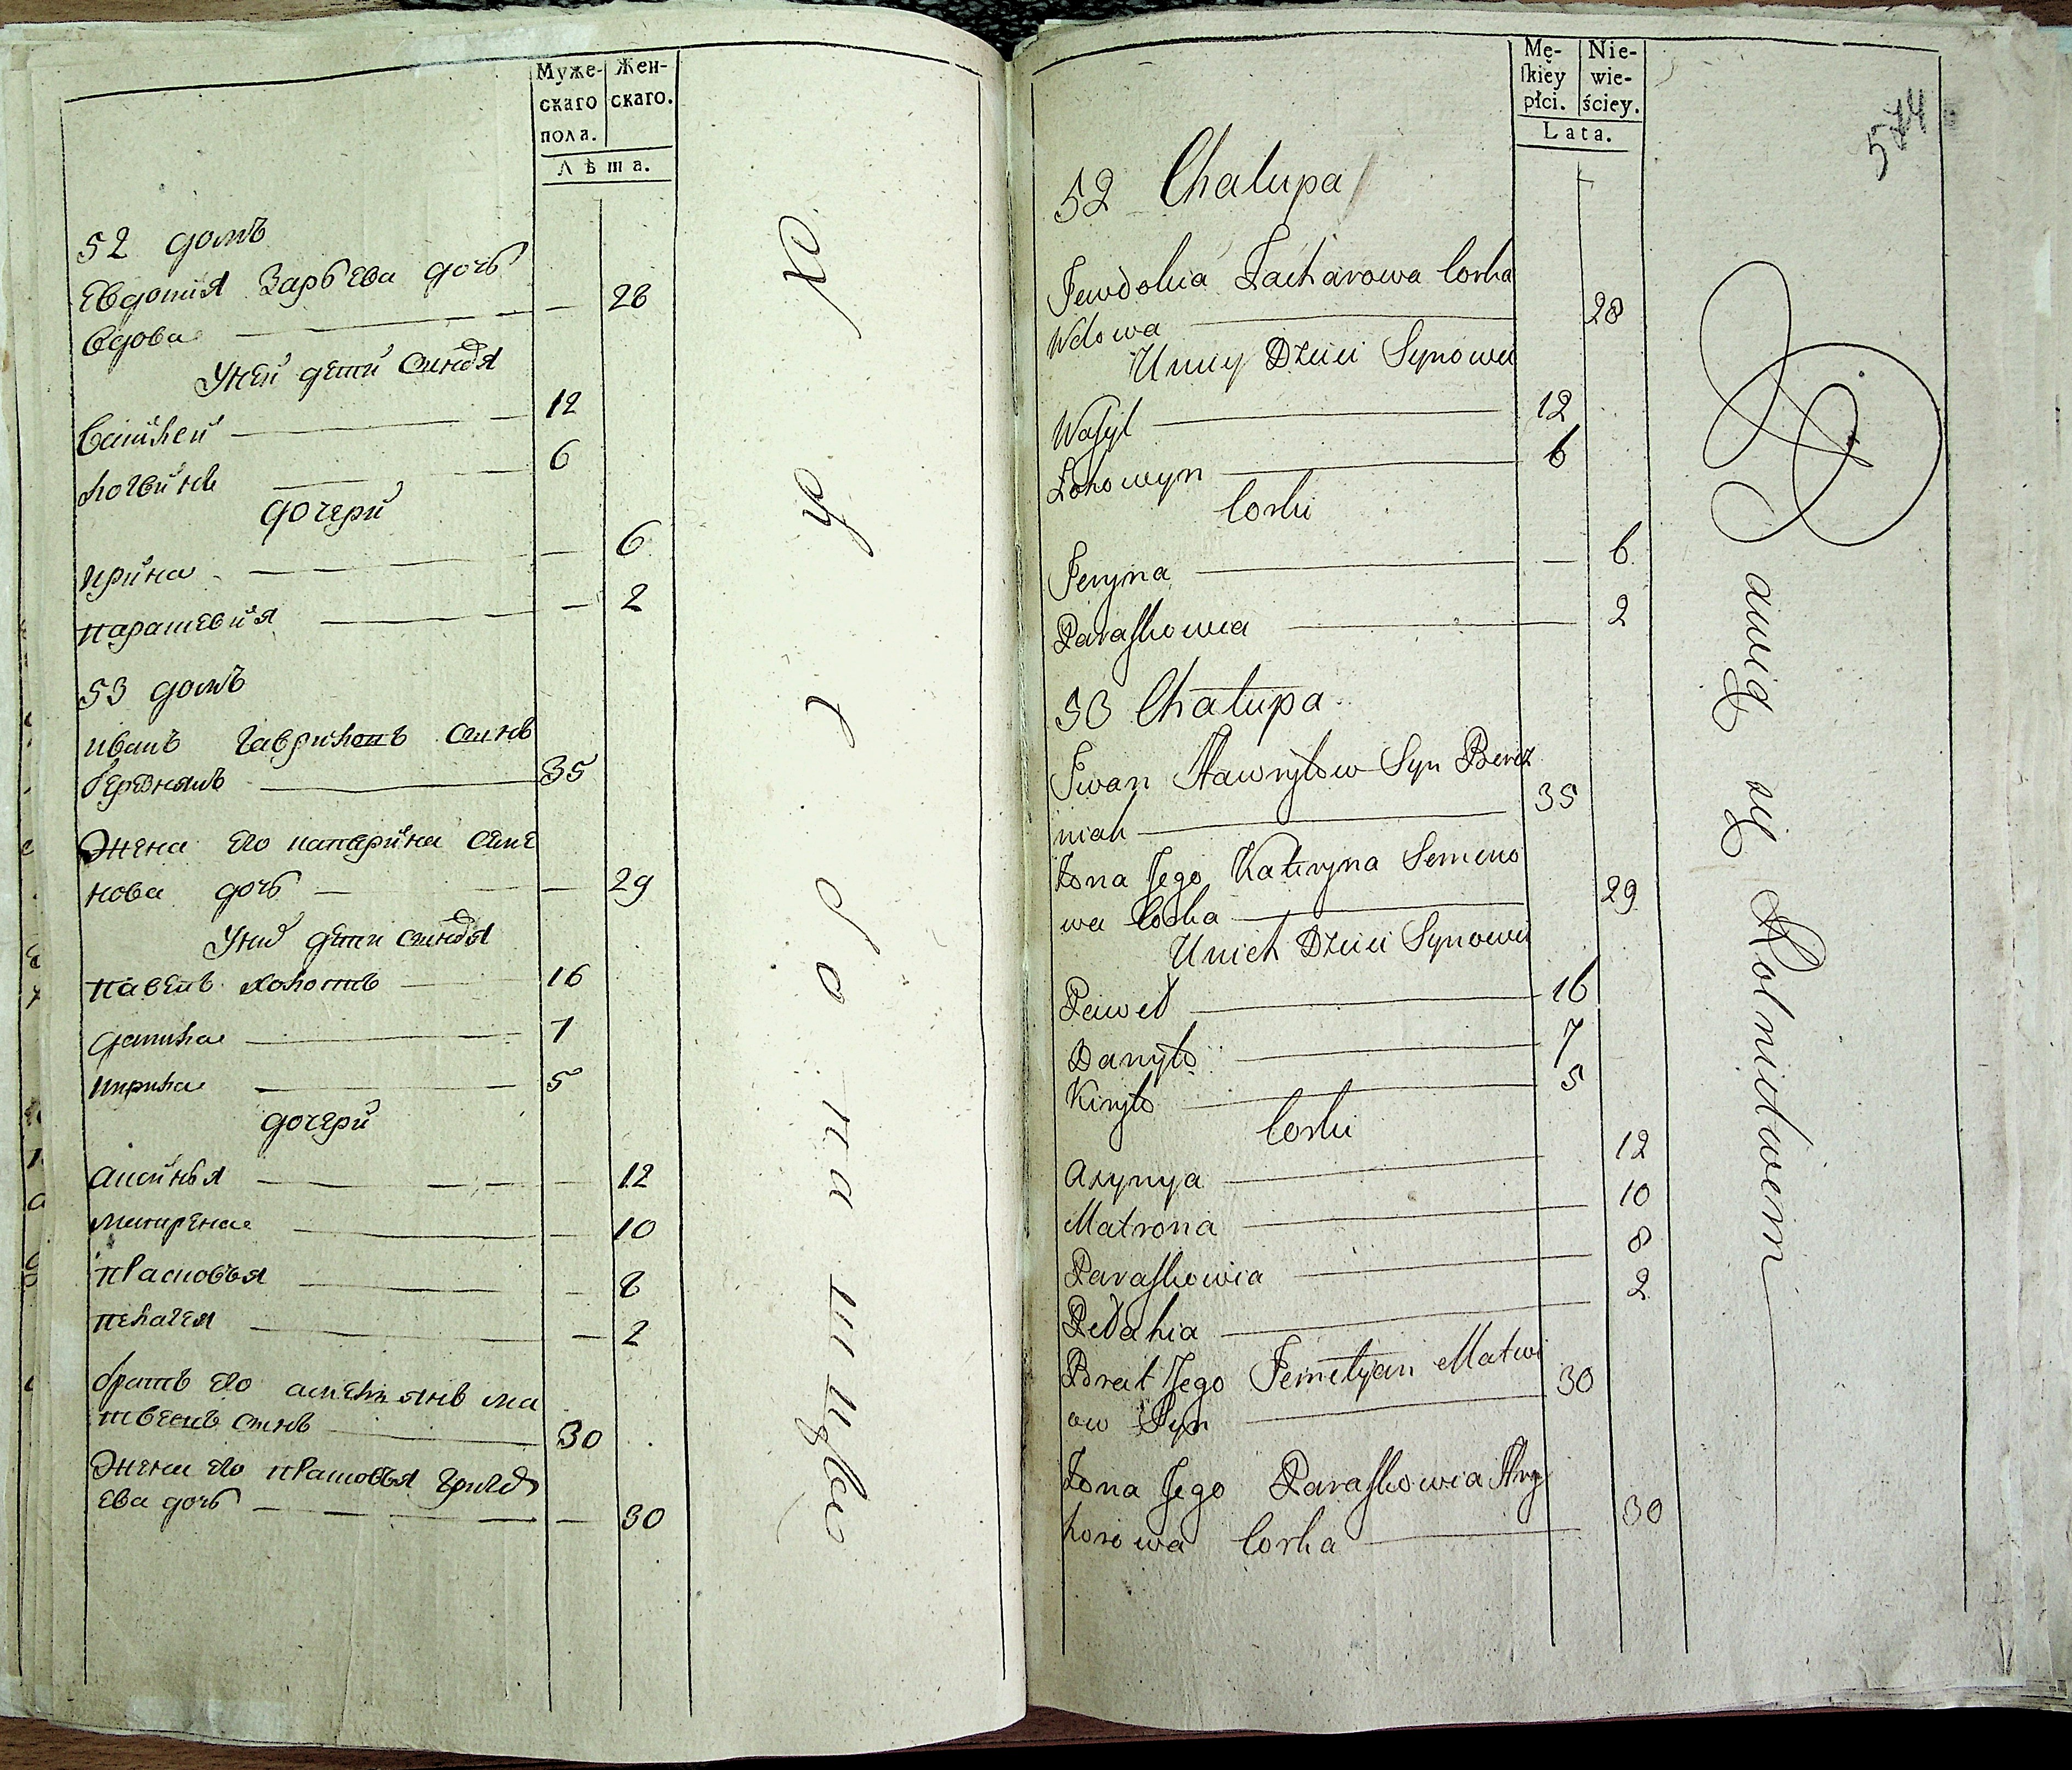 Муже-
скаго
пола.
Жен-
скаго.
Лѣта.
52 домъ
Евдокия Зарьева дочь
вдова — 28
У ней дети синовя
Василей — 12
Логвинъ — 6
дочери
Ирина — 6
Парашевия — 2
53 домъ
Иванъ Гавриловъ синъ
Березнякъ — 35
Жена его Катерина Семе
нова дочь — 29
У них дети синовя
Павелъ холостъ — 16
Данила — 7
Кирила — 5
дочери
Аксинья — 12
Матрена — 10
Прасковья — 8
Пелагея — 2
братъ его Амельянъ Ма
твеевъ синъ — 30
Жена его Прасковья Григор
ева дочь — 30
Хлѣбопашцы
574
Mę-
ſkiéy
płci.
Nie-
wie-
ściey.
Lata.
52 Chałupa
Jewdokia Zacharowa Corka
Wdowa — 28
U niey Dzieci Synowie
Wasyl — 12
Łohowyn — 6
Corki
Jeryna — 6
Paraskowia — 2
53 Chałupa
Jwan Hawryłow Syn Berez
niak — 35
Żona Jego Kateryna Semeno
wa Corka — 29
U nich Dzieci Synowie
Paweł — 16
Daniło — 7
Kiryło — 5
Corki
Axynya — 12
Matrona — 10
Paraskowia — 8
Pełahia — 2
Brat Jego Jemelyan Matwi
ow Syn — 30
Żona Jego Paraskowia Hry
horowa Corka — 30
Bawią się Rolnictwem